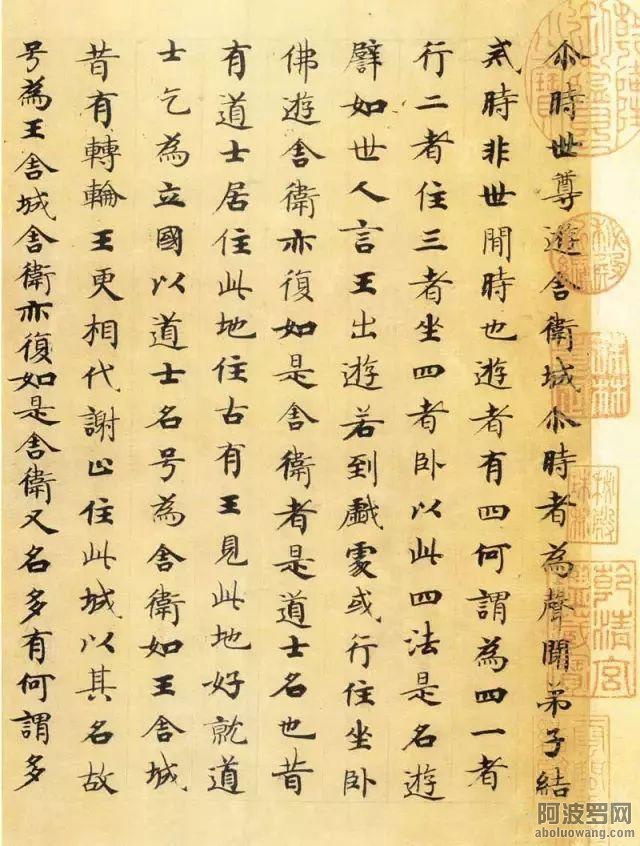 尒時世尊遊舍衛城尒時者為聲聞弟子結
戒時非世間時也遊者有四何謂為四一者
行二者住三者坐四者卧以此四法是名遊
譬如世人言王出遊若到戲處或行住坐卧
佛遊舍衛亦復如是舍衛者是道士名也昔
有道士居住此地住古有王見此地好就道
士乞為立國以道士名号為舍衛如王舍城
昔有轉輪王更相代謝止住此城以其名故
号為王舍城舍衛亦復如是舍衛又名多有何謂多
秘殿
珠林
乾清宮
阿波罗网
aboluowang.com